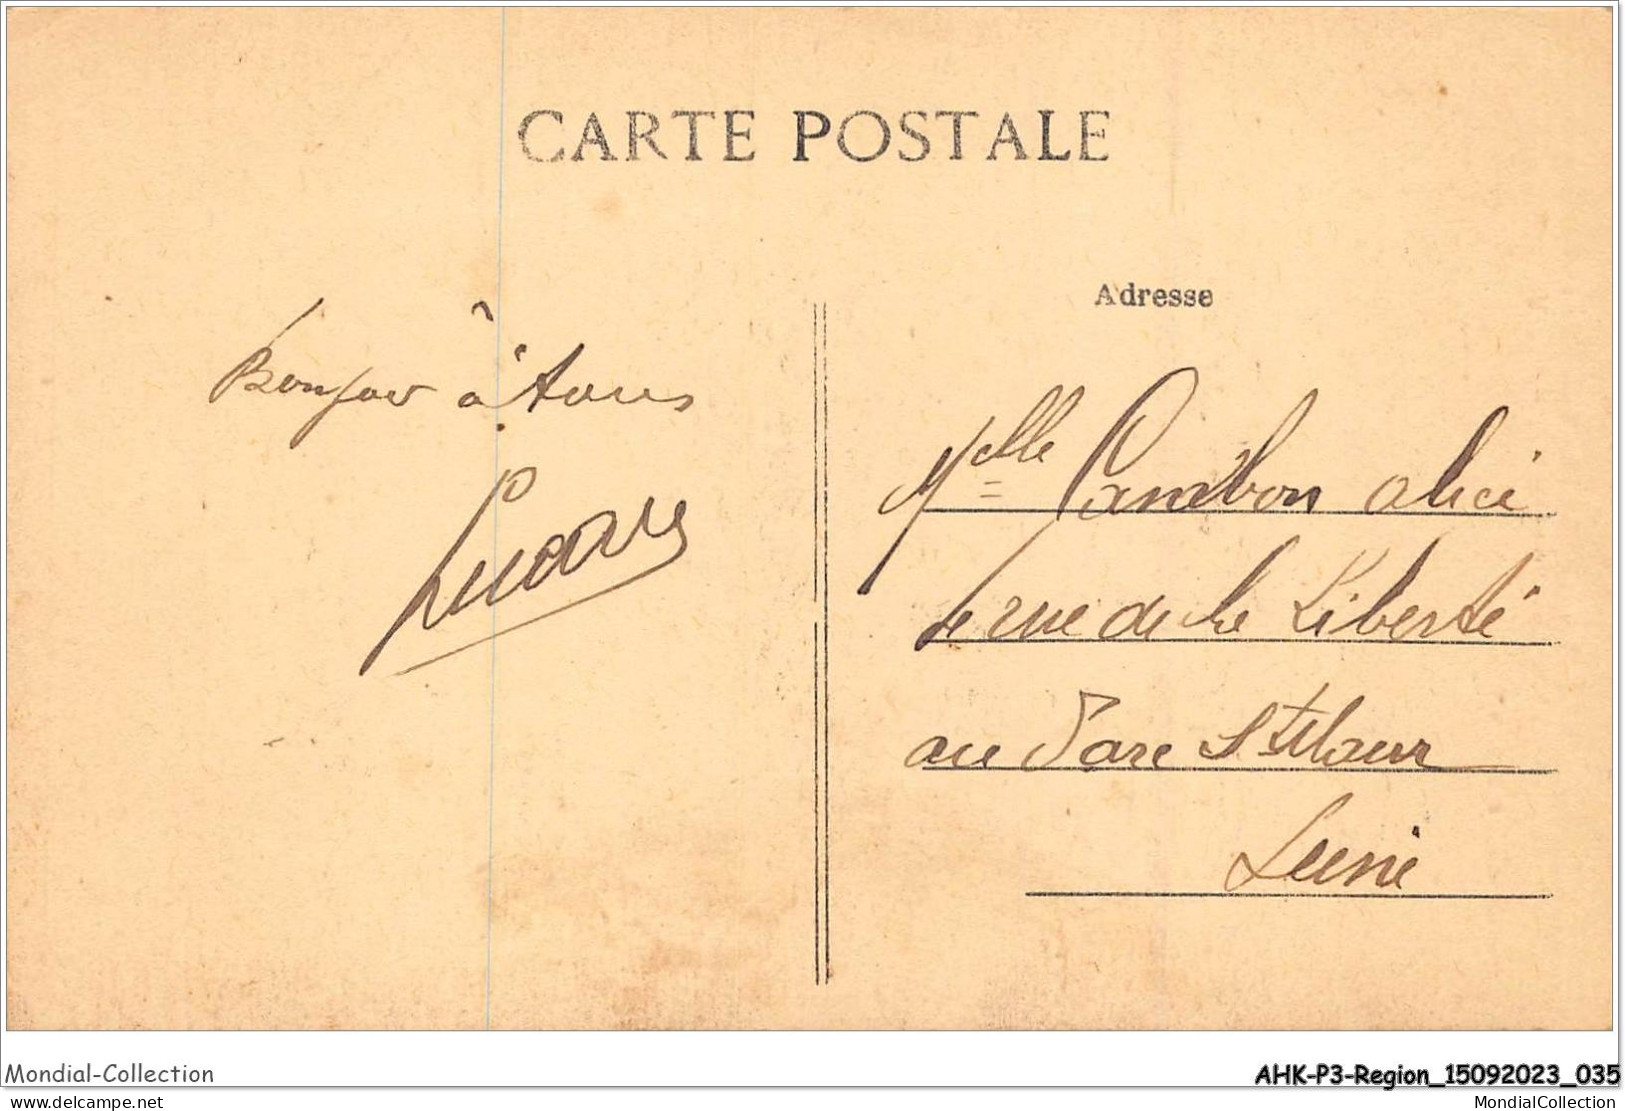 CARTE POSTALE
Adresse
Bonjour à tous
Melle Cambon Alice
rue de la Liberté
au Parc St Maur
Seine
Mondial-Collection
AHK-P3-Region_15092023_035
delcampe.net
MondialCollection